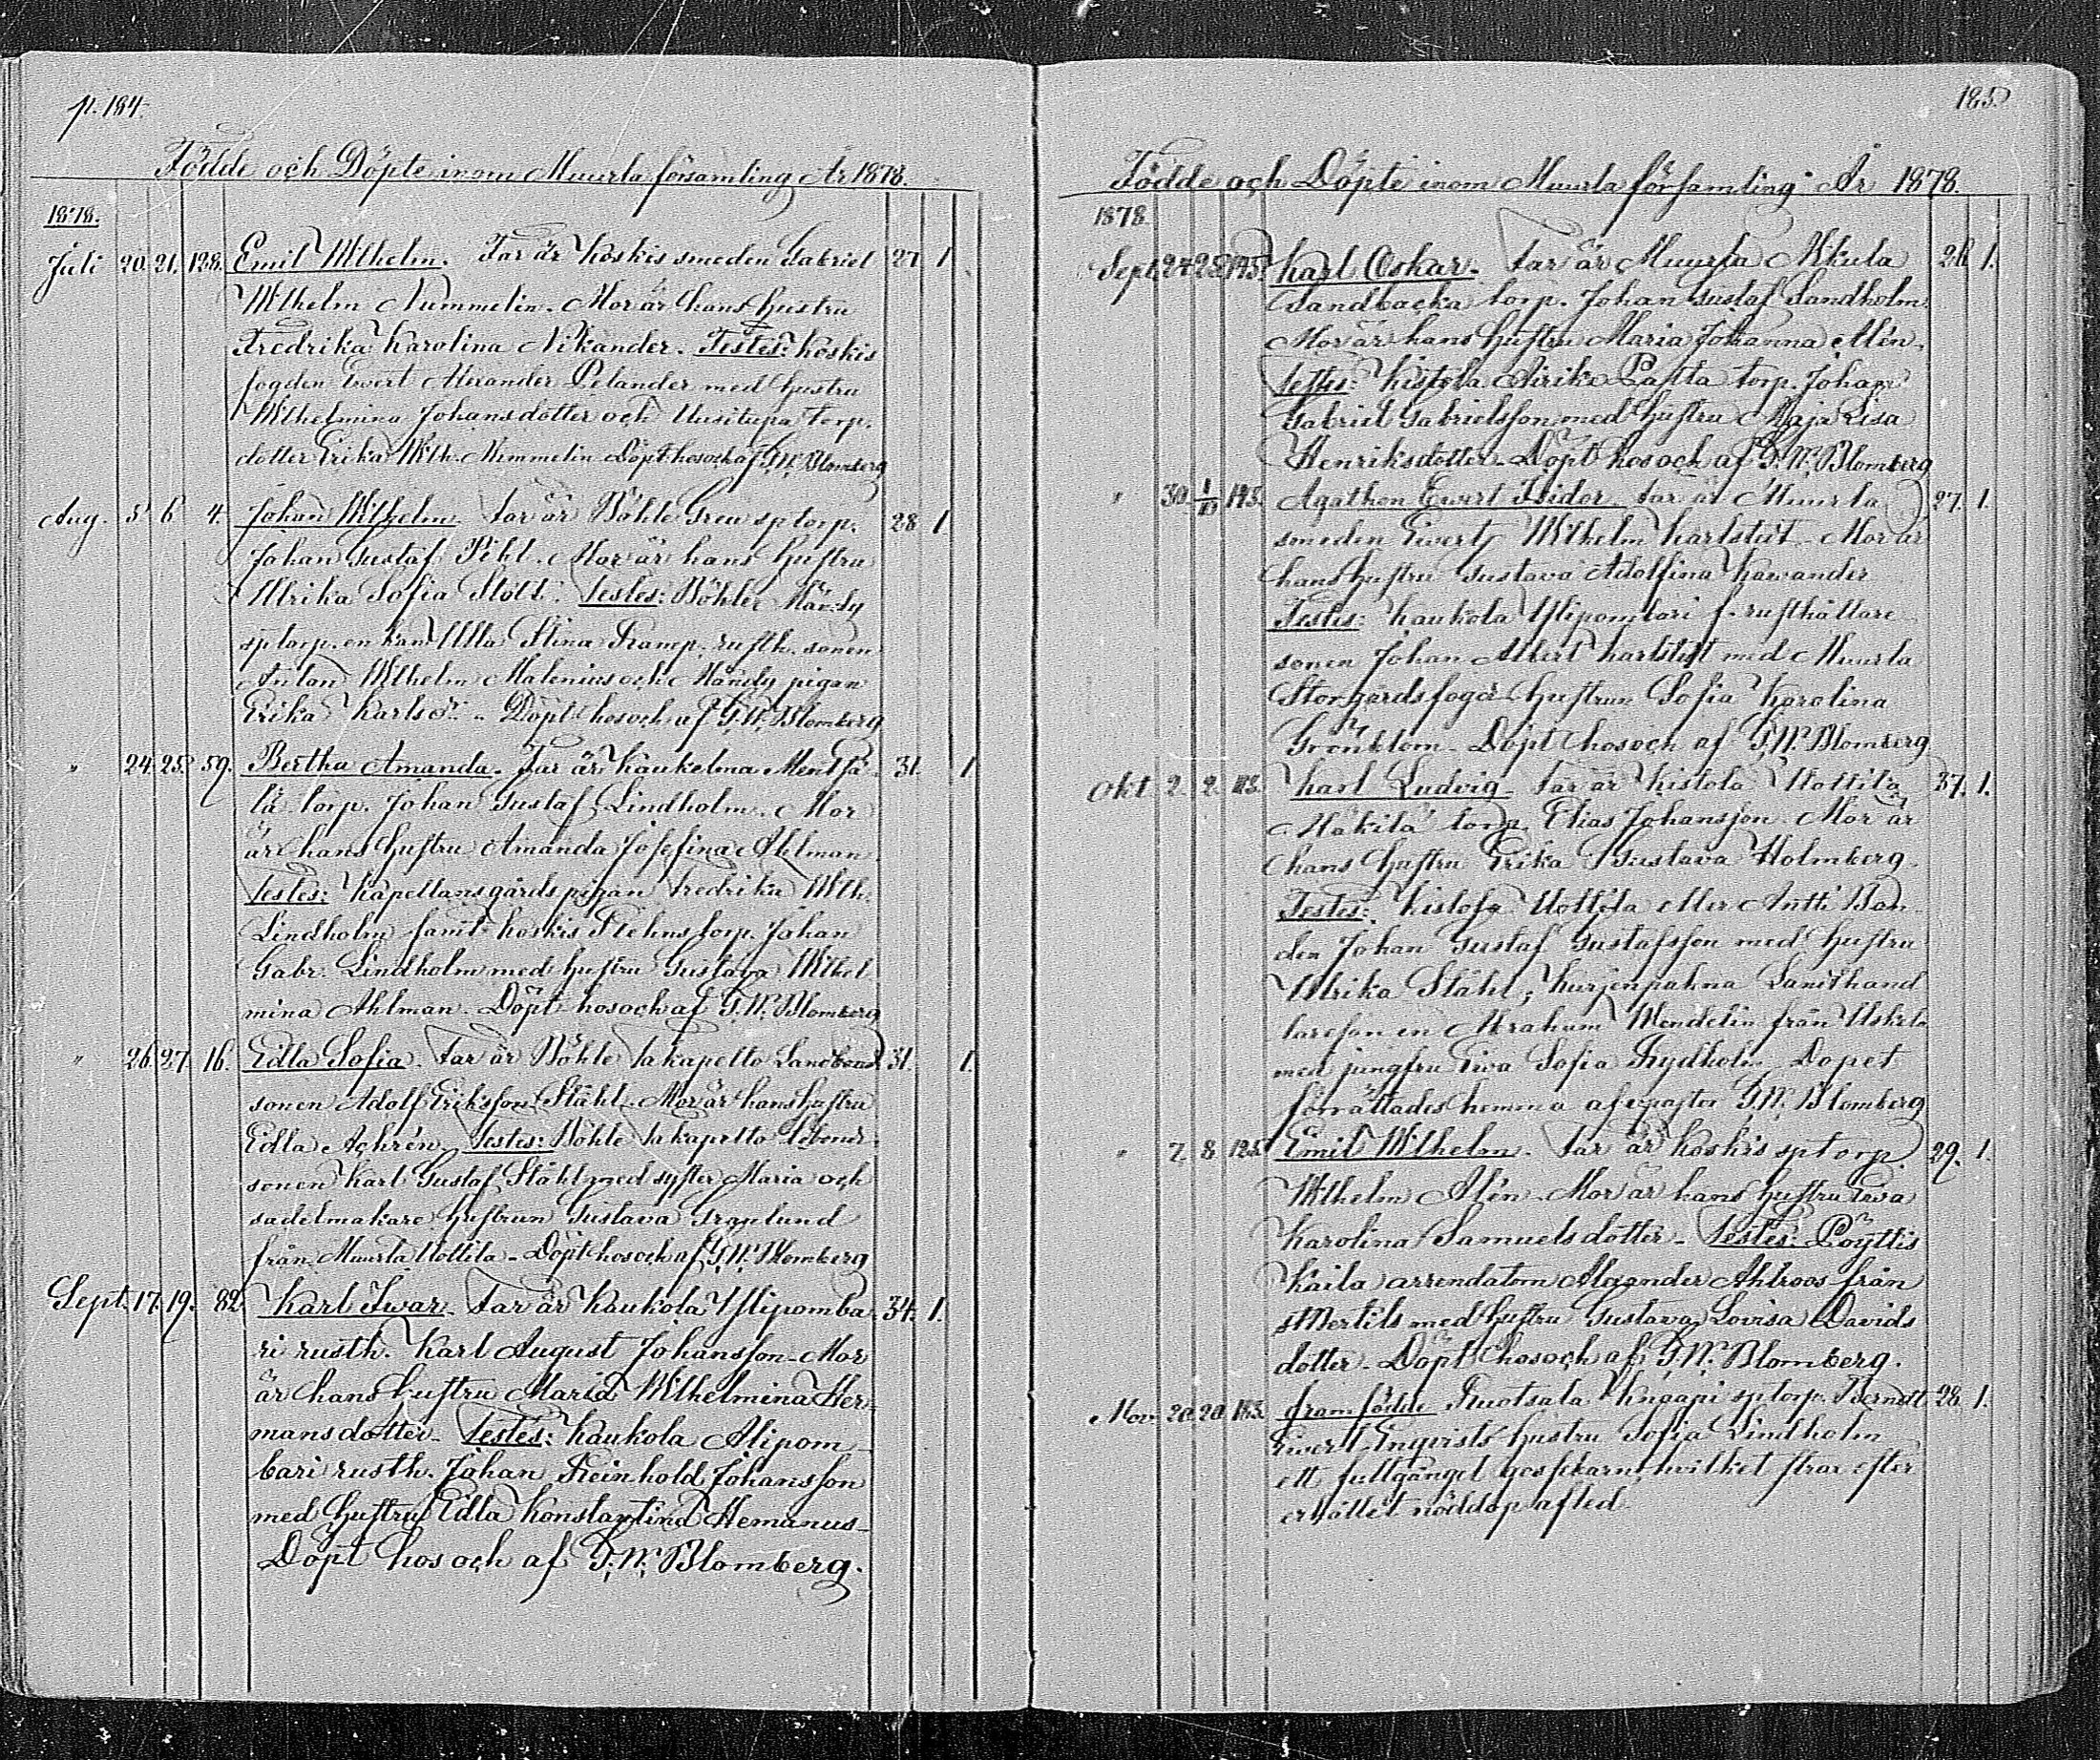 p. 184.
Födde och Döpte inom Muurla församling År 1878.
1878.
Juli 20. 21. 128. Emil Wilhelm. Far är Koskis smeden Gabriel 27 1
Wilhelm Nummelin. Mor är hans hustru
Fredrika Karolina Nikander. Testes: Koskis
fogden Ewert Alexander Pelander med hustru
Wilhelmina Johansdotter och Uusitupa torp.
dotter Erika Wilh. Nummelin Döpt hos och af G.W. Blomberg
Aug. 5 6 4. Johan Wilhelm. Far är Böhle Greu sptorp. 28 1
Johan Gustaf Pihl. Mor är hans hustru
Ulrika Sofia Stolt. Testes: Böhle Mändy
sptorp. enkan Ulla Stina Kamp, rusth. sonen
Anton Wilhelm Malenius och Mändy pigan
Erika Karlsdr. Döpt hos och af G.W. Blomberg
" 24. 25. 59. Bertha Amanda. Far är Kaukelma Mentsä- 31. 1
lä torp. Johan Gustaf Lindholm. Mor
är hans hustru Amanda Josefina Ahlman.
Testes: Kapellansgårds pigan Fredrika Wilh.
Lindholm samt Koskis torp. Johan
Gabr. Lindholm med hustru Gustava Wilhel
mina Ahlman. Döpt hos och af G.W. Blomberg
" 26. 27. 16. Edla Sofia. Far är Böhle Takapelto 31. 1.
sonen Adolf Eriksson Ståhl. Mor är hans hustru
Edla Achrén. Testes: Böhle Takapelto
sonen Karl Gustaf Ståhl med syster Maria och
sadelmakare hustrun Gustava Graplund
från Muurla Uottila. Döpt hos och af G.W. Blomberg
Sept. 17. 19. 82. Karl Iwar. Far är Kaukola Ylipomba- 34. 1.
ri rusth. Karl August Johansson. Mor
är hans hustru Maria Wilhelmina Her-
mansdotter. Testes: Kaukola Alipom-
bari rusth. Johan Reinhold Johansson
med hustru Edla Konstantina Hemanus.
Döpt hos och af G.W. Blomberg.
185.
Födde och Döpte inom Muurla församling År 1878.
1878.
Sept. 24. 25. 195. Karl Oskar. Far är Muurla Nikula 26 1.
Sandbacka torp. Johan Gustaf Sandholm.
Mor är hans hustru Maria Johanna Alén.
Testes: Kistola torp. Johan
Gabriel Gabrielsson med hustru Maja Lisa
Henriksdotter. Döpt hos och af G.W. Blomberg
" 30. 1/10 193. Agathon Ewert Isidor. Far är Muurla 27. 1.
smeden Ewert Wilhelm Karlstedt. Mor är
hans hustru Gustava Adolfina Kawander
Testes: Kaukola Ylipombari f. rusthållare
sonen Johan Albert Karlstedt med Muurla
Storgårds fogde hustrun Sofia Karolina
Grönblom. Döpt hos och af G.W. Blomberg
Okt 2. 2. 113. Karl Ludvig. Far är Kistola Uottila 37. 1.
Mäkilä torp. Elias Johansson. Mor är
hans hustru Erika Gustava Holmberg.
Testes: Kistola Uottila eller Antti Bon-
den Johan Gustaf Gustafsson med hustru
Ulrika Ståhl, Kurjenpahna Landthand
laresonen Abraham Wendelin från Uskela
med jungfru Ewa Sofia Rydholm. Dopet
förrättades hemma af v.pastor G.W. Blomberg
" 7. 8. 125. Emil Wilhelm. Far är Koskis sptorp. 29. 1.
Wilhelm Alén. Mor är hans hustru Ewa
Karolina Samuelsdotter. Testes: Pöyttis
Kaila arrendatorn Alexander Ahlroos från
S:t Bertils med hustru Gustava Lovisa Davids
dotter. Döpt hos och af G.W. Blomberg.
Nov. 20. 20. 183. Framfödde Ruotsala sptorp. Berndt 28. 1.
Ewert Enqvists hustru Sofia Lindholm
ett fullgånget gossebarn, hvilket strax efter
erhållet nöddop afled.